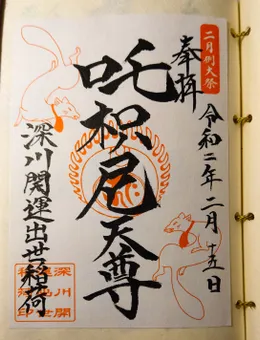 二月例大祭
奉拝
令和二年二月十五日
吒枳尼天尊
深川開運出世稲荷